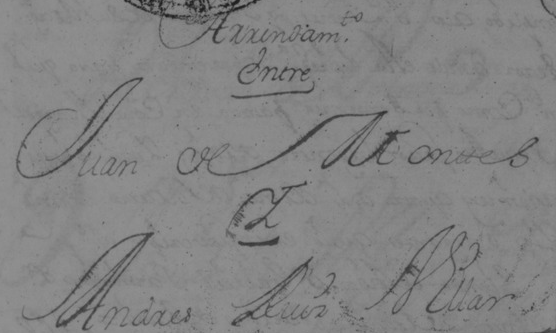 Arrendam.to
Entre
Juan de Montes
Y
Andres Ruiz Villar